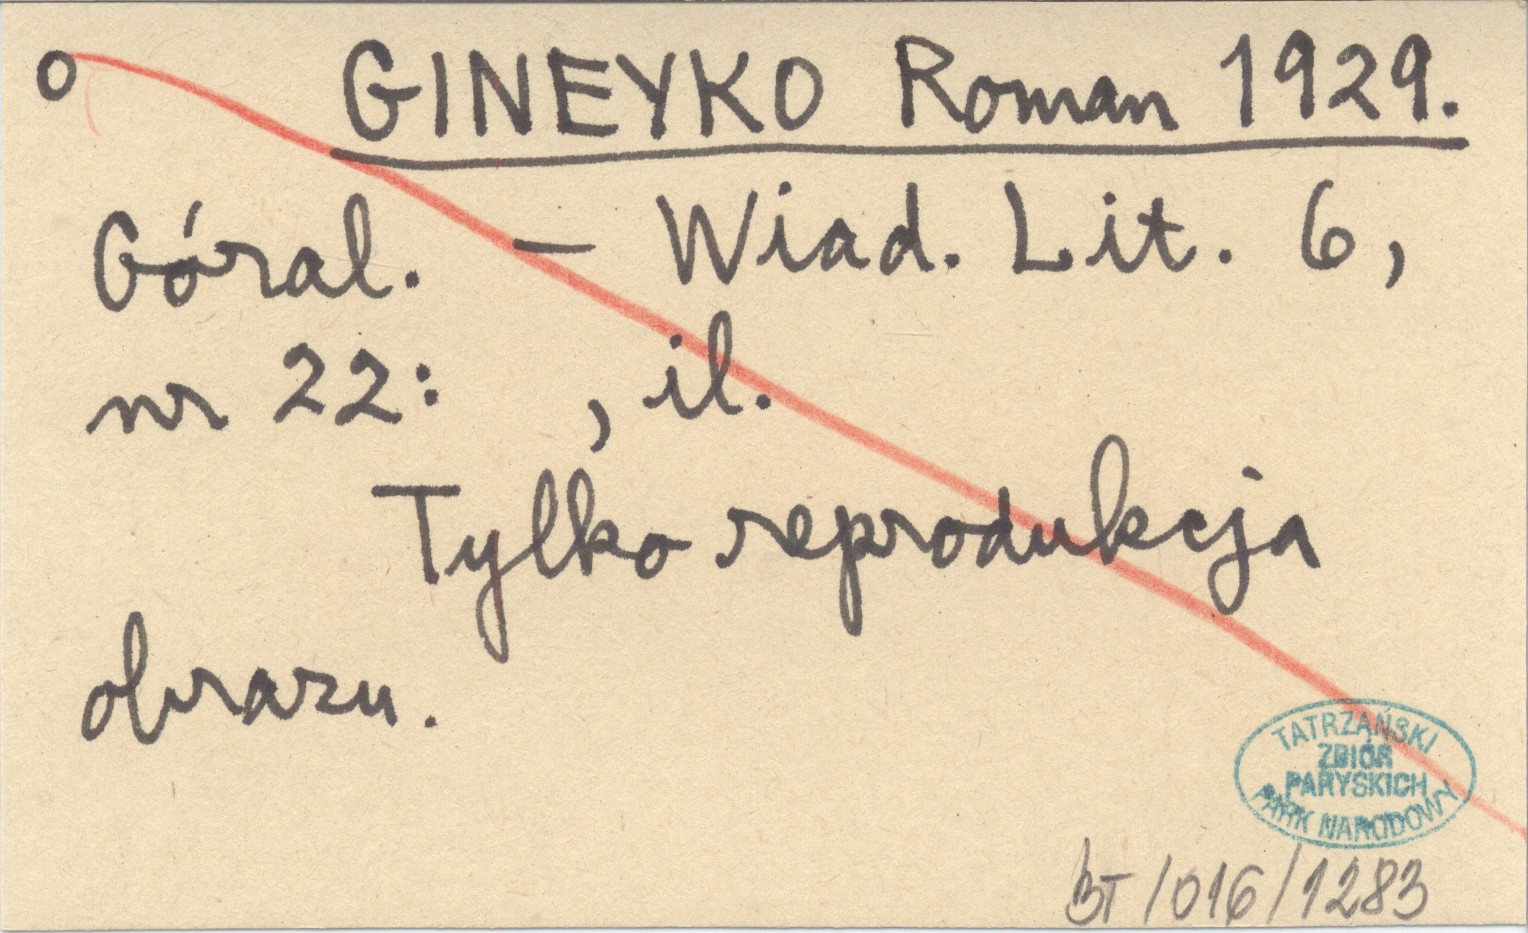 o GINEYKO Roman 1929.
Góral. — Wiad. Lit. 6,
nr 22: , il.
Tylko reprodukcja
obrazu.
TATRZAŃSKI
ZBIÓR
PARYSKICH
PARK NARODOWY
BT/016/1283